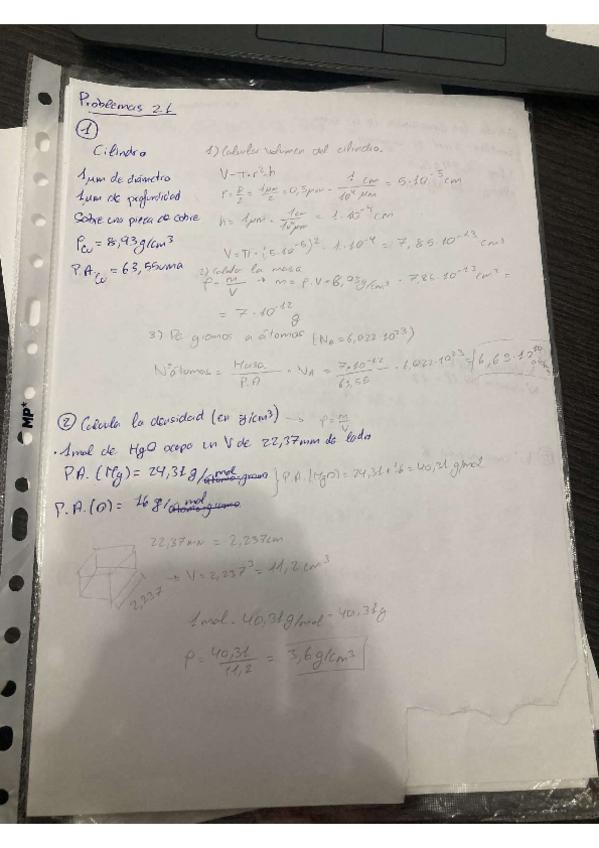 Problemas 2.1
①
Cilindro
1 μm de diámetro
1 μm de profundidad
Sobre una pieza de cobre
ρCu = 8,93 g/cm³
P.A.Cu = 63,55 uma
1) Calcular volumen del cilindro.
V = π·r²·h
r = D/2 = 1μm/2 = 0,5 μm · 1 cm/10⁴ μm = 5·10⁻⁵ cm
h = 1 μm · 1 cm/10⁴ μm = 1·10⁻⁴ cm
V = π·(5·10⁻⁵)²·1·10⁻⁴ = 7,85·10⁻¹³ cm³
2) Calcular la masa
ρ = m/V → m = ρ·V = 8,93 g/cm³ · 7,85·10⁻¹³ cm³ =
= 7·10⁻¹² g
3) De gramos a átomos (NA = 6,022·10²³)
Nº átomos = Masa/P.A · NA = 7·10⁻¹²/63,55 · 6,022·10²³ = 6,63·10¹⁰
② Calcula la densidad (en g/cm³) → ρ = m/V
· 1 mol de MgO ocupa un V de 22,37 mm de lado
P.A. (Mg) = 24,31 g/mol
P.A. (O) = 16 g/mol
P.A. (MgO) = 24,31 + 16 = 40,31 g/mol
22,37 mm = 2,237 cm
→ V = 2,237³ = 11,2 cm³
2,237
1 mol · 40,31 g/mol = 40,31 g
ρ = 40,31/11,2 = 3,6 g/cm³
MP+